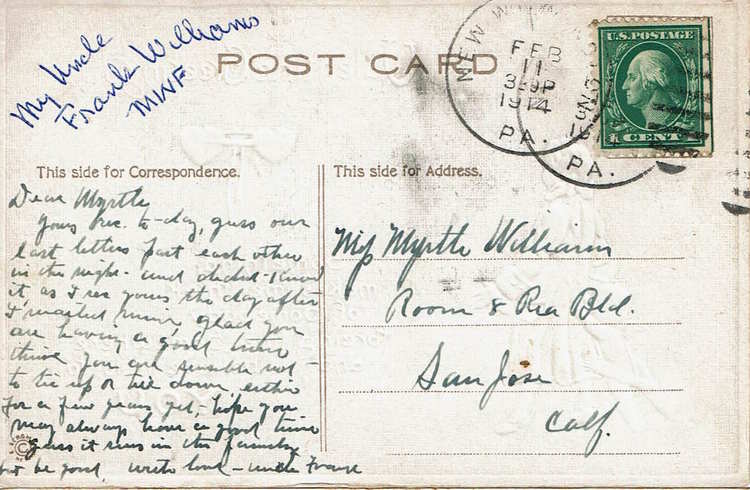 My Uncle
Frank Williams
MWF
POST CARD
NEW W
FEB
11
3-0P
1914
PA.
PA.
U.S.POSTAGE
1 CENT
This side for Correspondence.
This side for Address.
Dear Myrtle
yours rec. to-day, guess our
last letters past each other
in the night - and didnt know
it, as I rec yours the day after
I mailed mine, glad you
are having a good time
think you are sensible not
to tie up or tie down either
for a few years yet, hope you
may always have a good time
guess it runs in the family
but be good, with love - uncle Frank
Miss Myrtle Williams
Room 8 Rea Bld.
San Jose
Calf.